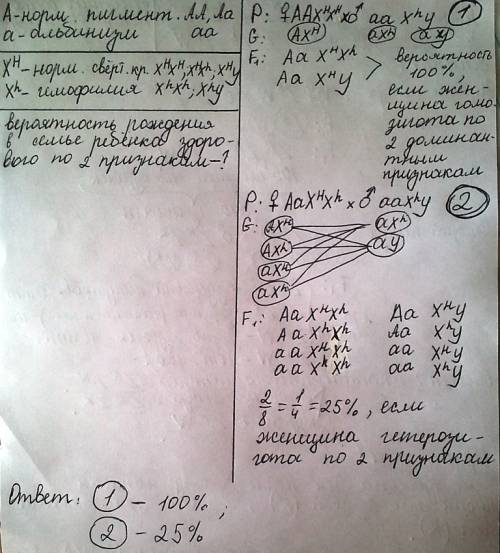 А-норм. пигмент. АА, Аа
а-альбинизм аа
Xᴴ-норм. свёрт. кр. XᴴXᴴ, XᴴXʰ, XᴴY
Xʰ-гемофилия XʰXʰ, XʰY
вероятность рождения
в семье ребёнка здоро-
вого по 2 признакам-?
P: ♀ AAXᴴXᴴ x ♂ aa XʰY ①
G: AXᴴ aXʰ aY
F₁: Aa XᴴXʰ
Aa XᴴY
> вероятность
100%,
если жен-
щина гомо-
зигота по
2 доминан-
тным
признакам
P: ♀ AaXᴴXʰ x ♂ aaXʰY ②
G: AXᴴ aXʰ
AXʰ aY
aXᴴ
aXʰ
F₁: Aa XᴴXʰ Aa XᴴY
Aa XʰXʰ Aa XʰY
aa XᴴXʰ aa XᴴY
aa XʰXʰ aa XʰY
2/8 = 1/4 = 25%, если
женщина гетерози-
гота по 2 признакам
Ответ: ① - 100%;
② - 25%